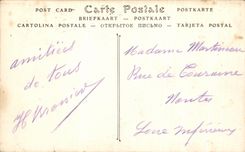 POST CARD Carte Postale POSTKARTE
BRIEFKAART — POSTKAART
CARTOLINA POSTALE — ОТКРЫТОЕ ПИСЬМО — TARJETA POSTAL
amitiés
de tous
Madame
Rue de Touraine
Nantes
Loire Inférieure